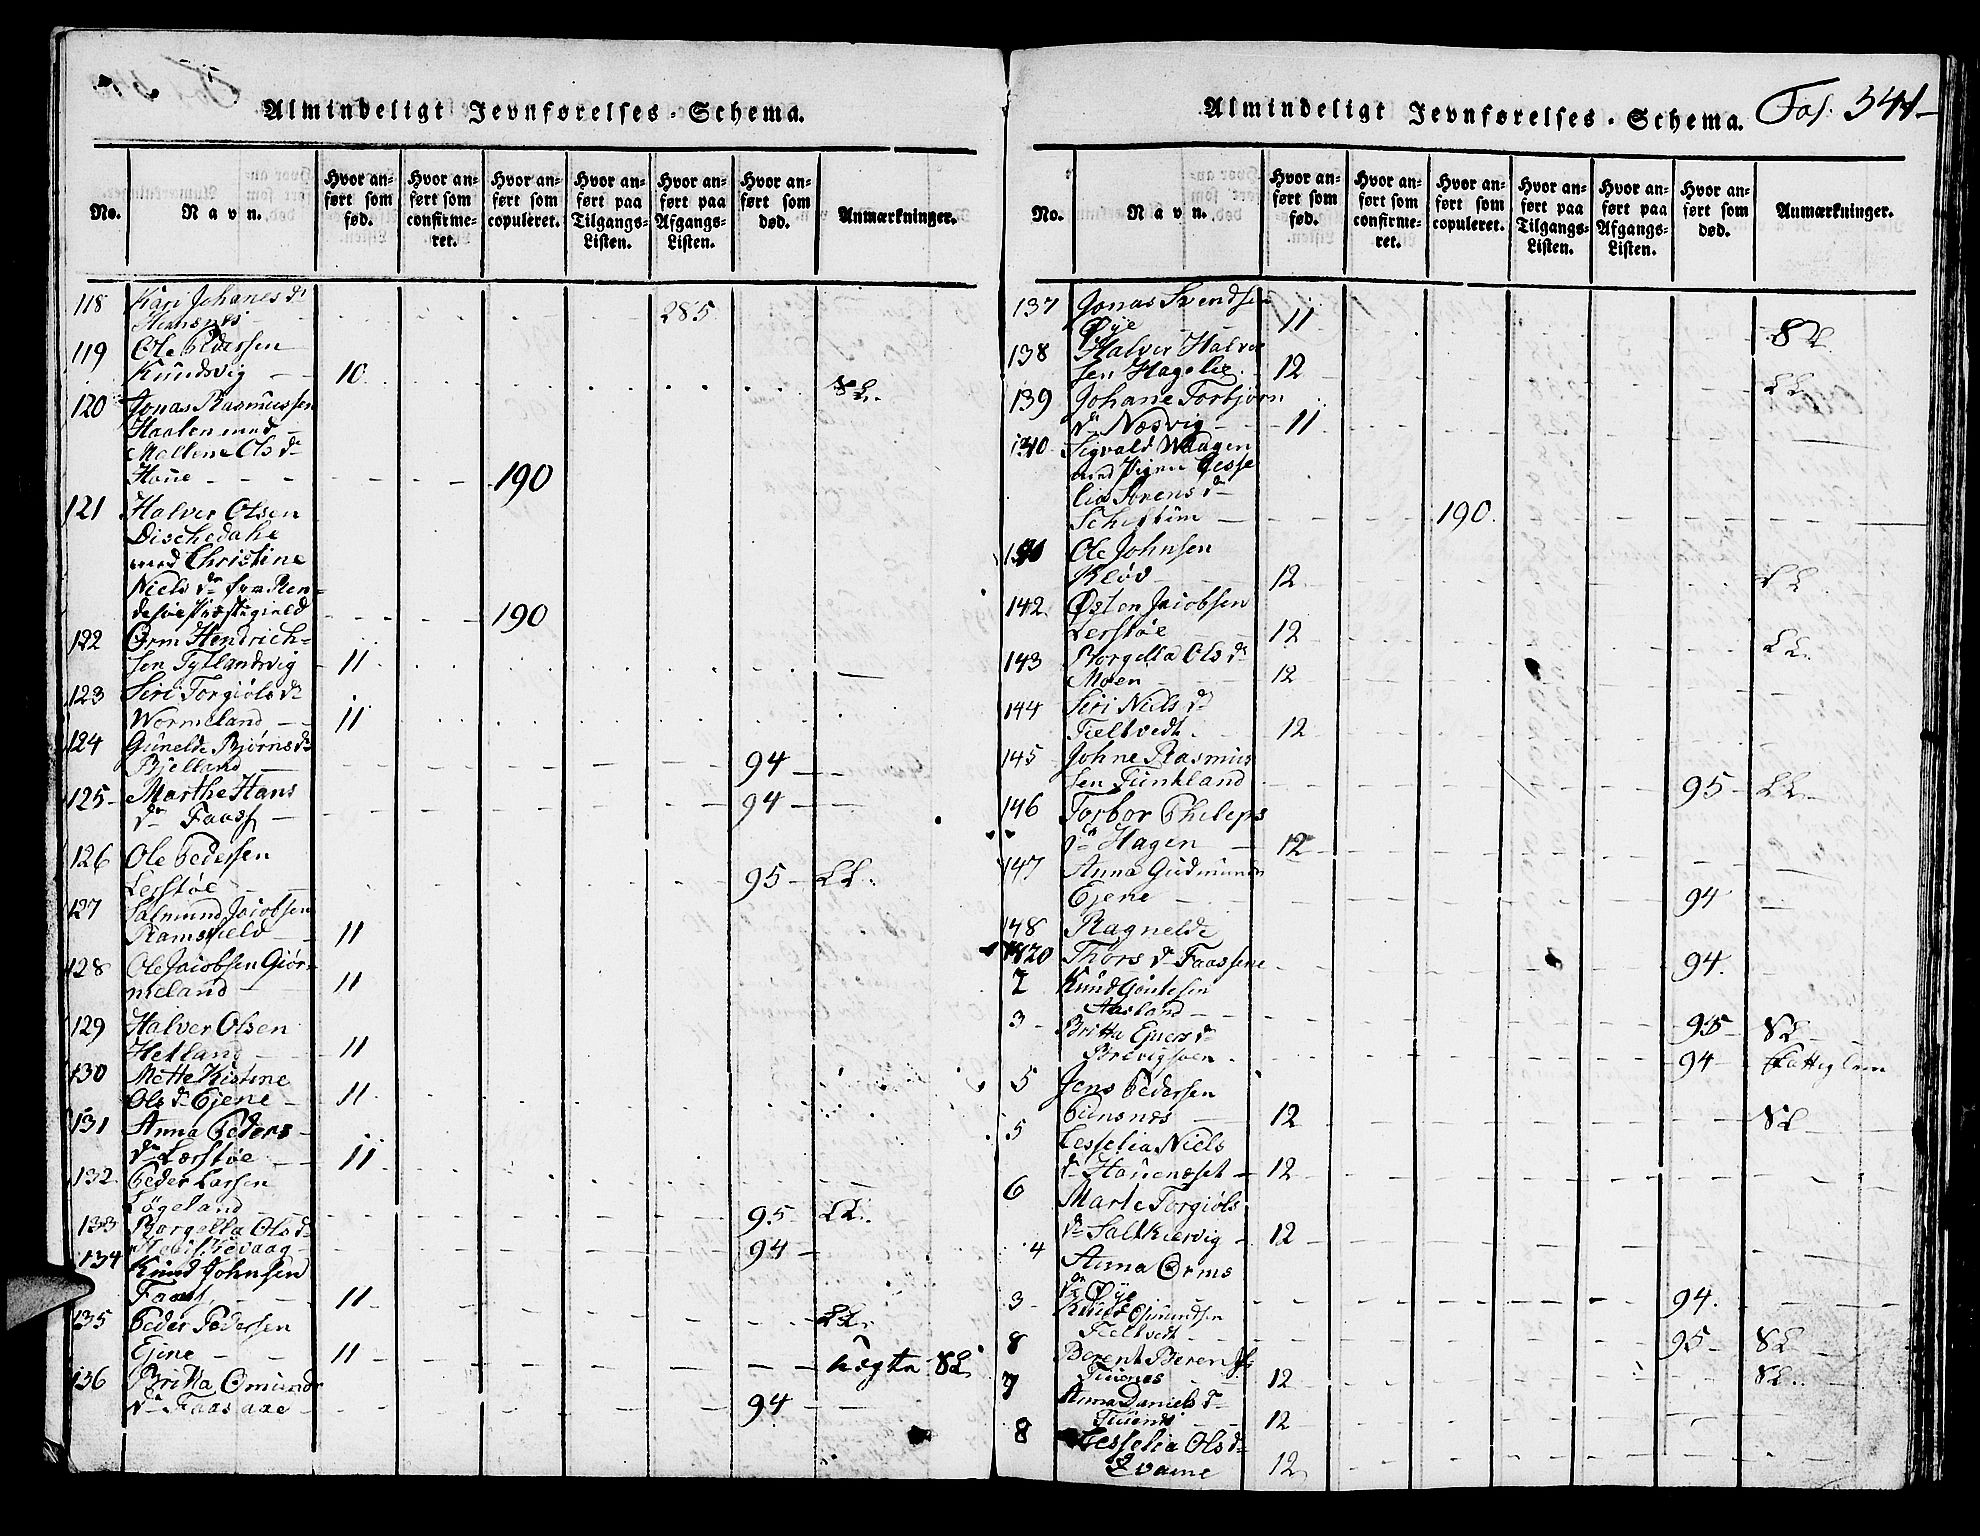 Almindeligt Jevnførelses-Schema.
No.
Navn.
Hvor anført som fød.
Hvor anført som confirmeret.
Hvor anført som copuleret.
Hvor anført paa Tilgangs-Listen.
Hvor anført paa Afgangs-Listen.
Hvor anført som død.
Anmærkninger.
118 Kari Johanes dr
285
119 Ole Pedersen
Knudsvig 10 SL.
120 Jonas Rasmussen
Haalen med
Mallene Ols dr
Houe 190
121 Halver Olsen
Dischedahe
med Christine
Niels dr fra Ren-
desøe Præstegield 190
122 Orm Hendrich-
sen Tytlandsvig 11
123 Siri Torgiøls dr
Wormeland 11
124 Gunelde Bjørns dr
Bjelland 94
125 Marthe Hans
dr Faass 94
126 Ole Pedersen
Lerstøe 95 LL.
127 Salmund Jacobsen
Ramsfield 11
128 Ole Jacobsen Giør-
meland 11
129 Halver Olsen
Hetland 11
130 Mette Kistine
Ols dr Ejene 11
131 Anna Peders
dr Lærstøe 11
132 Peder Larsen
Løgeland 95 LL.
133 Borgella Ols dr
94
134 Knud Johnsen
Faass 11
135 Peder Pedersen LL.
Ejene 11
136 Britta Omunds SL.
dr Faasaae 94
Almindeligt Jevnførelses-Schema. Fol. 341
No.
Navn.
Hvor anført som fød.
Hvor anført som confirmeret.
Hvor anført som copuleret.
Hvor anført paa Tilgangs-Listen.
Hvor anført paa Afgangs-Listen.
Hvor anført som død.
Anmærkninger.
137 Jonas Svendsen
Øye 11 SL
138 Halver Halver
sen Hagelie 12 LL
139 Johane Torbjørn
dr Næsvig 11
140 Sigvald Waagen
med Pigen Cesse
lia Sørens dr
190.
Ole Johnsen
Kløv 12 LL
142 Østen Jacobsen
Lerstøe 12 LL
143 Borgella Ols dr
Moen 12
144 Siri Niels dr
Tveltvedt 12
145 Johne Rasmus
sen Funkland 95 LL
146 Torbor Pheleps
dr Hagen 12
147 Anna Gudmunds
Ejene 94
148 Ragnelde
1820 Thors dr Faassene 94.
2 Knud Goutesen
Aasland 95 SL
3 Britta Ejners dr
94 Fattiglem
5 Jens Pedersen
12 SL
5 Cesselia Niels
dr Houenæset 12
6 Marte Torgiøls
dr Saltkiervig 12
4 Anna Orms
dr Øye 94.
3 Knud Omundsen
Tveltvedt 95 SL
8 Berent Berents
Tuenes 12 SL.
7 Anna Daniels dr
Tuenes 12
8 Cesselia Ols dr
Qvame 12